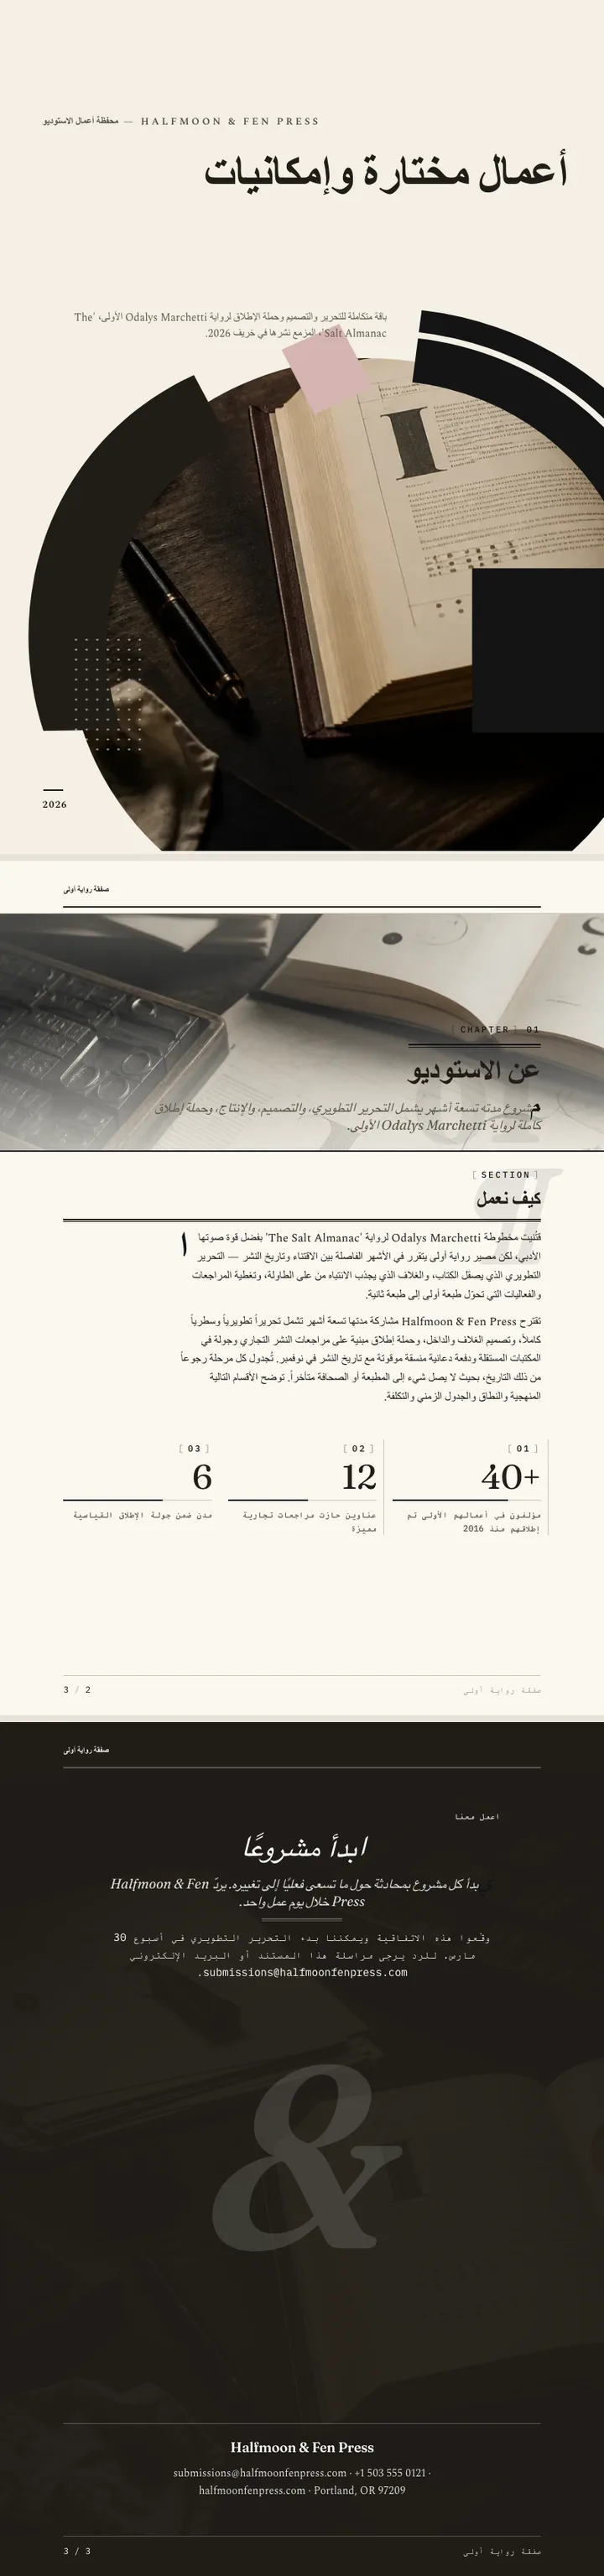 محفظة أعمال الاستوديو — HALFMOON & FEN PRESS
أعمال مختارة وإمكانيات
باقة متكاملة للتحرير والتصميم وحملة الإطلاق لرواية Odalys Marchetti الأولى، 'The
Salt Almanac'، المزمع نشرها في خريف 2026.
2026
صفقة رواية أولى
[ CHAPTER ] 01
عن الاستوديو
مشروع مدته تسعة أشهر يشمل التحرير التطويري، والتصميم، والإنتاج، وحملة إطلاق
كاملة لرواية Odalys Marchetti الأولى.
[ SECTION ]
كيف نعمل
اقتُنيت مخطوطة Odalys Marchetti لرواية 'The Salt Almanac' بفضل قوة صوتها
الأدبي، لكن مصير رواية أولى يتقرر في الأشهر الفاصلة بين الاقتناء وتاريخ النشر — التحرير
التطويري الذي يصقل الكتاب، والغلاف الذي يجذب الانتباه من على الطاولة، وتغطية المراجعات
والفعاليات التي تحوّل طبعة أولى إلى طبعة ثانية.
تقترح Halfmoon & Fen Press مشاركة مدتها تسعة أشهر تشمل تحريراً تطويرياً وسطرياً
كاملاً، وتصميم الغلاف والداخل، وحملة إطلاق مبنية على مراجعات النشر التجاري وجولة في
المكتبات المستقلة ودفعة دعائية منسقة موقوتة مع تاريخ النشر في نوفمبر. تُجدول كل مرحلة رجوعاً
من ذلك التاريخ، بحيث لا يصل شيء إلى المطبعة أو الصحافة متأخراً. توضح الأقسام التالية
المنهجية والنطاق والجدول الزمني والتكلفة.
[ 01 ]
40+
مؤلفون في أعمالهم الأولى تم
إطلاقهم منذ 2016
[ 02 ]
12
عناوين حازت مراجعات تجارية
مميزة
[ 03 ]
6
مدن ضمن جولة الإطلاق القياسية
صفقة رواية أولى
3 / 2
صفقة رواية أولى
اعمل معنا
ابدأ مشروعًا
يبدأ كل مشروع بمحادثة حول ما تسعى فعليًا إلى تغييره. يردّ Halfmoon & Fen
Press خلال يوم عمل واحد.
وقّعوا هذه الاتفاقية ويمكننا بدء التحرير التطويري في أسبوع 30
مارس. للرد يرجى مراسلة هذا المستند أو البريد الإلكتروني
submissions@halfmoonfenpress.com.
&
Halfmoon & Fen Press
submissions@halfmoonfenpress.com · +1 503 555 0121 ·
halfmoonfenpress.com · Portland, OR 97209
صفقة رواية أولى
3 / 3